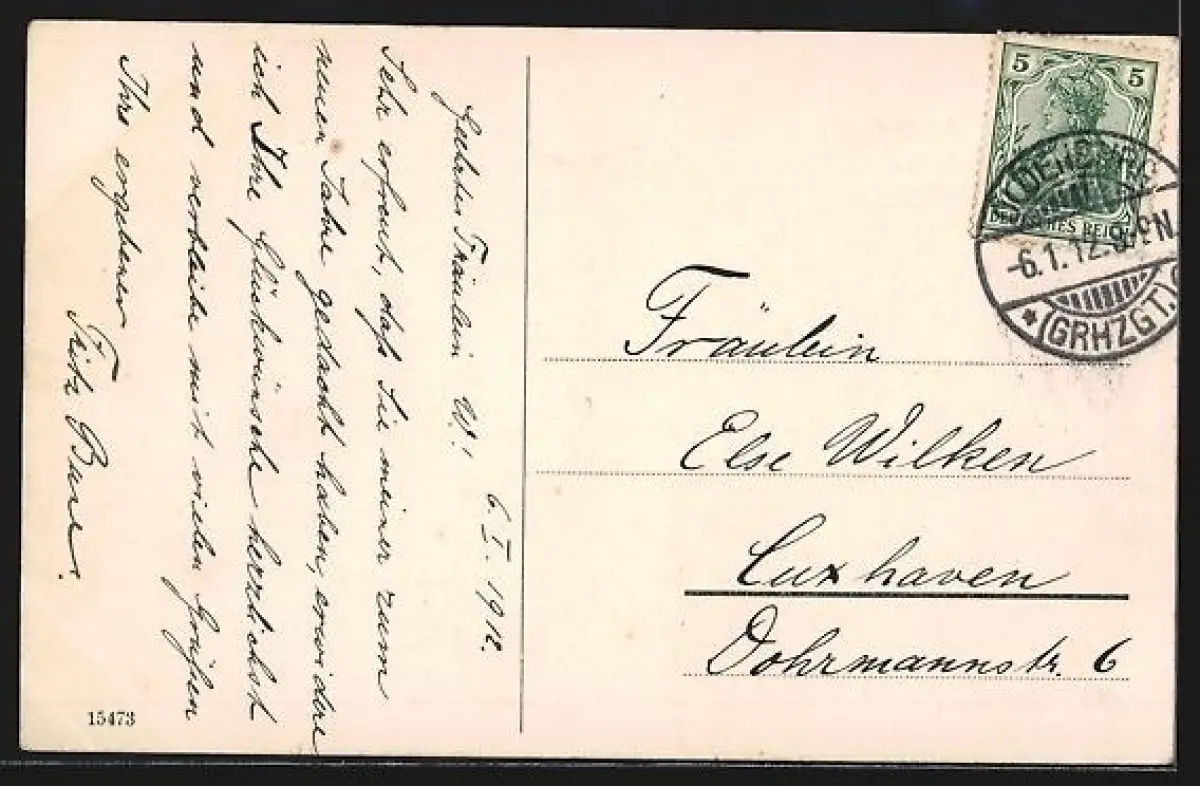 6. I. 1912.
Geehrtes Fräulein W.!
Sehr erfreut, daß Sie meiner zum
neuen Jahre gedacht haben, erwidere
ich Ihre Glückwünsche herzlichst
und verbleibe mit vielen Grüßen
Ihr ergebener
Fritz
15473
5 5
DEUTSCHES REICH
OLDENBURG
-6.1.12.8-9N.
* (GRHZGT.)
Fräulein
Else Wilken
Cuxhaven
Dohrmannstr. 6